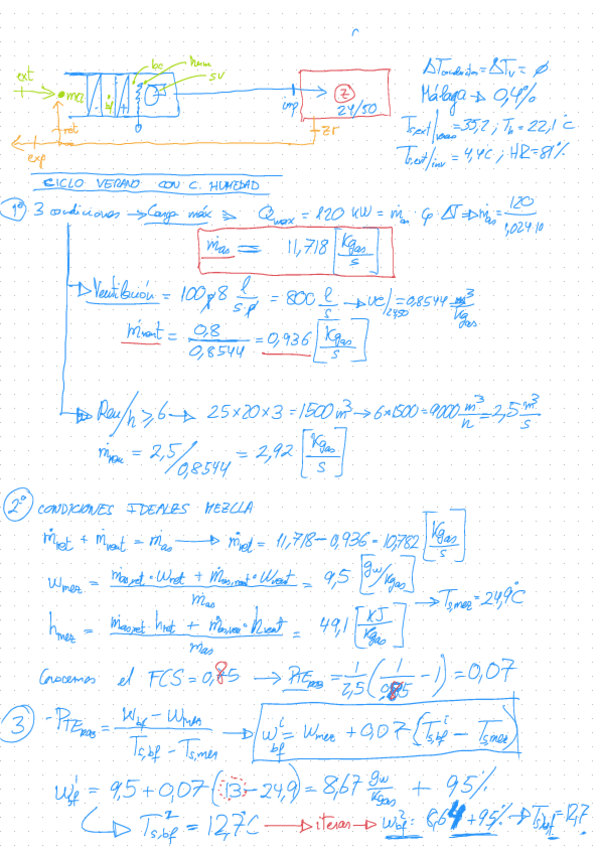 ext
mez
bf
bc
hum
SV
imp
Z
24/50
ret
exp
Zr
ΔTconductos = ΔTv = ∅
Málaga → 0,4%
Ts,ext/verano = 35,2 ; Th = 22,1 °C
Ts,ext/inv = 4,4C ; HR = 81%
CICLO VERANO CON C. HUMEDAD
1º 3 condiciones → Carga máx ⇒ Qmax = 120 KW = ṁas · Cp · ΔT ⇒ ṁas = 120/1,024·10
ṁas = 11,718 [Kgas/s]
→ Ventilación = 100p 8 l/s·p = 800 l/s → ve/24,50 = 0,8544 m³/Kgas
ṁvent = 0,8/0,8544 = 0,936 [Kgas/s]
→ Ren/h ≥ 6 → 25×20×3 = 1500 m³ → 6×1500 = 9000 m³/h = 2,5 m³/s
ṁren = 2,5/0,8544 = 2,92 [Kgas/s]
2º CONDICIONES IDEALES MEZCLA
ṁret + ṁvent = ṁas → ṁret = 11,718 - 0,936 = 10,782 [Kgas/s]
wmez = (ṁas,ret · wret + ṁas,vent · wvent)/ṁas = 9,5 [gw/Kgas]
→ Ts,mez = 24,9°C
hmez = (ṁas,ret · hret + ṁas,ven · hvent)/ṁas = 49,1 [KJ/Kgas]
Conocemos el FCS = 0,85 → PTEmas = 1/2,5 (1/0,85 - 1) = 0,07
3 - PTEmas = (wbf - wmez)/(Ts,bf - Ts,mez) → wbf^i = wmez + 0,07 (Ts,bf^i - Ts,mez)
wbf^i = 9,5 + 0,07 (13 - 24,9) = 8,67 gw/Kgas + 95%
→ Ts,bf^2 = 12,7°C → iteras → wbf^2 : 8,64 + 95% → Ts,bf = 12,7